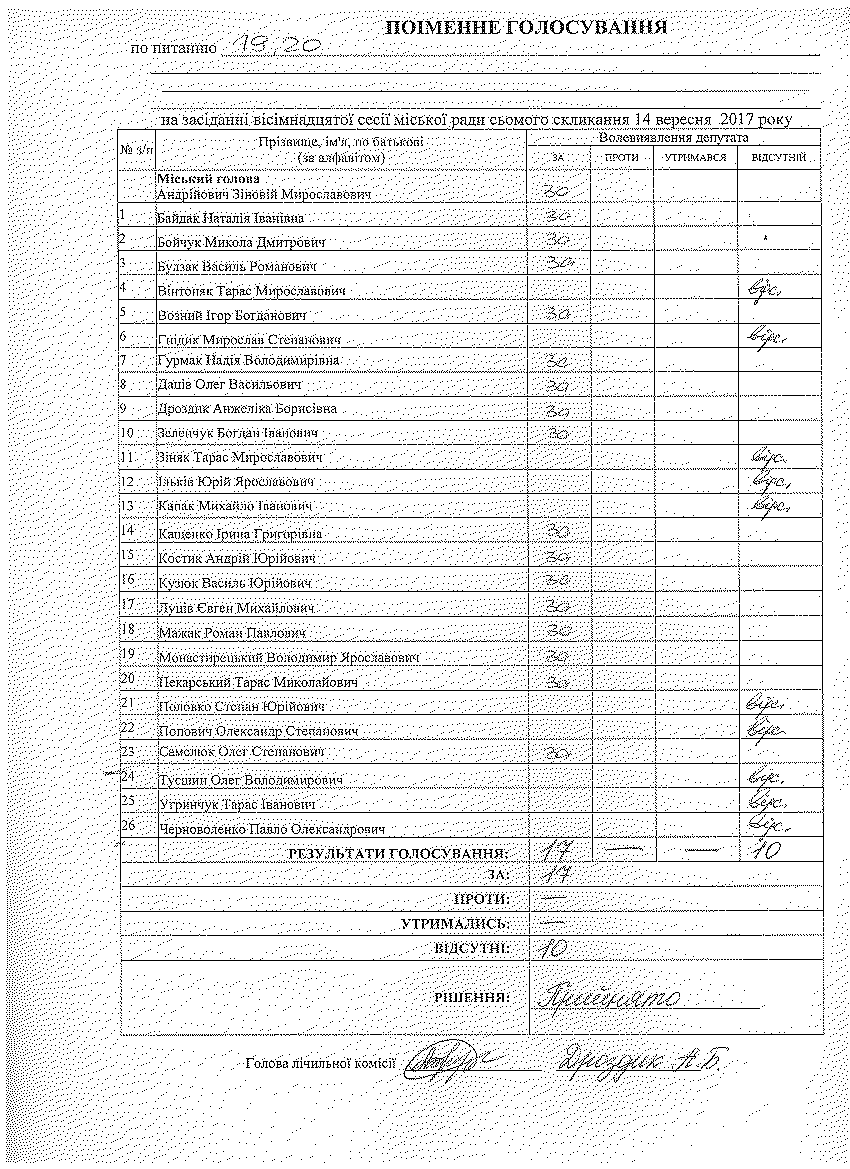 ПОІМЕННЕ ГОЛОСУВАННЯ
по питанню 19,20
на засіданні вісімнадцятої сесії міської ради сьомого скликання 14 вересня 2017 року
№ з/п Прізвище, ім'я, по батькові (за алфавітом) Волевиявлення депутата
ЗА ПРОТИ УТРИМАВСЯ ВІДСУТНІЙ
Міський голова
Андрійович Зіновій Мирославович за
1 Байдак Наталія Іванівна за
2 Бойчук Микола Дмитрович за
3 Булзак Василь Романович за
4 Вінтоняк Тарас Мирославович відс.
5 Возний Ігор Богданович за
6 Гнідик Мирослав Степанович відс.
7 Гурмак Надія Володимирівна за
8 Даців Олег Васильович за
9 Дроздик Анжеліка Борисівна за
10 Зеленчук Богдан Іванович за
11 Зіняк Тарас Мирославович відс.
12 Ільків Юрій Ярославович відс.
13 Капак Михайло Іванович відс.
14 Кащенко Ірина Григорівна за
15 Костик Андрій Юрійович за
16 Кузюк Василь Юрійович за
17 Луців Євген Михайлович за
18 Мажак Роман Павлович за
19 Монастирецький Володимир Ярославович за
20 Пекарський Тарас Миколайович за
21 Половко Степан Юрійович відс.
22 Попович Олександр Степанович відс.
23 Самолюк Олег Степанович за
24 Тусшин Олег Володимирович відс.
25 Угринчук Тарас Іванович відс.
26 Черноволенко Павло Олександрович відс.
РЕЗУЛЬТАТИ ГОЛОСУВАННЯ: 17 — — 10
ЗА: 17
ПРОТИ: —
УТРИМАЛИСЬ: —
ВІДСУТНІ: 10
РІШЕННЯ: Прийнято
Голова лічильної комісії Дроздик А.Б.